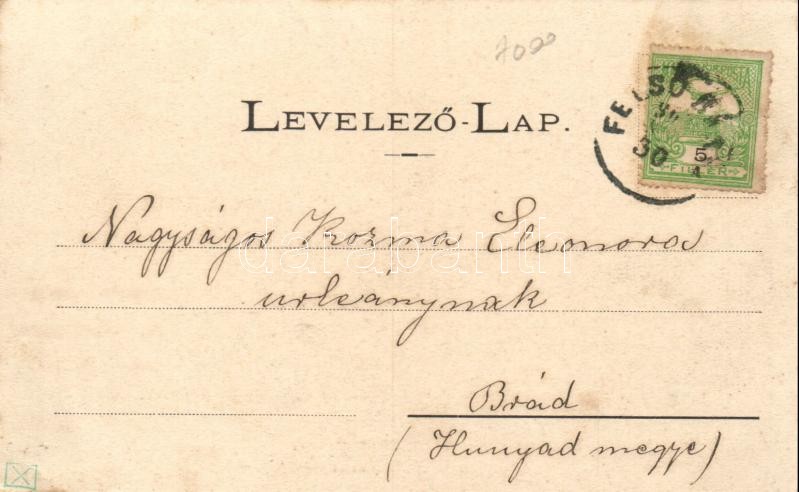 7000
LEVELEZŐ-LAP.
FELSŐ
30
5
FILLÉR
Nagyságos Kozma Eleonora
urleánynak
Brád
(Hunyad megye)
darabanth